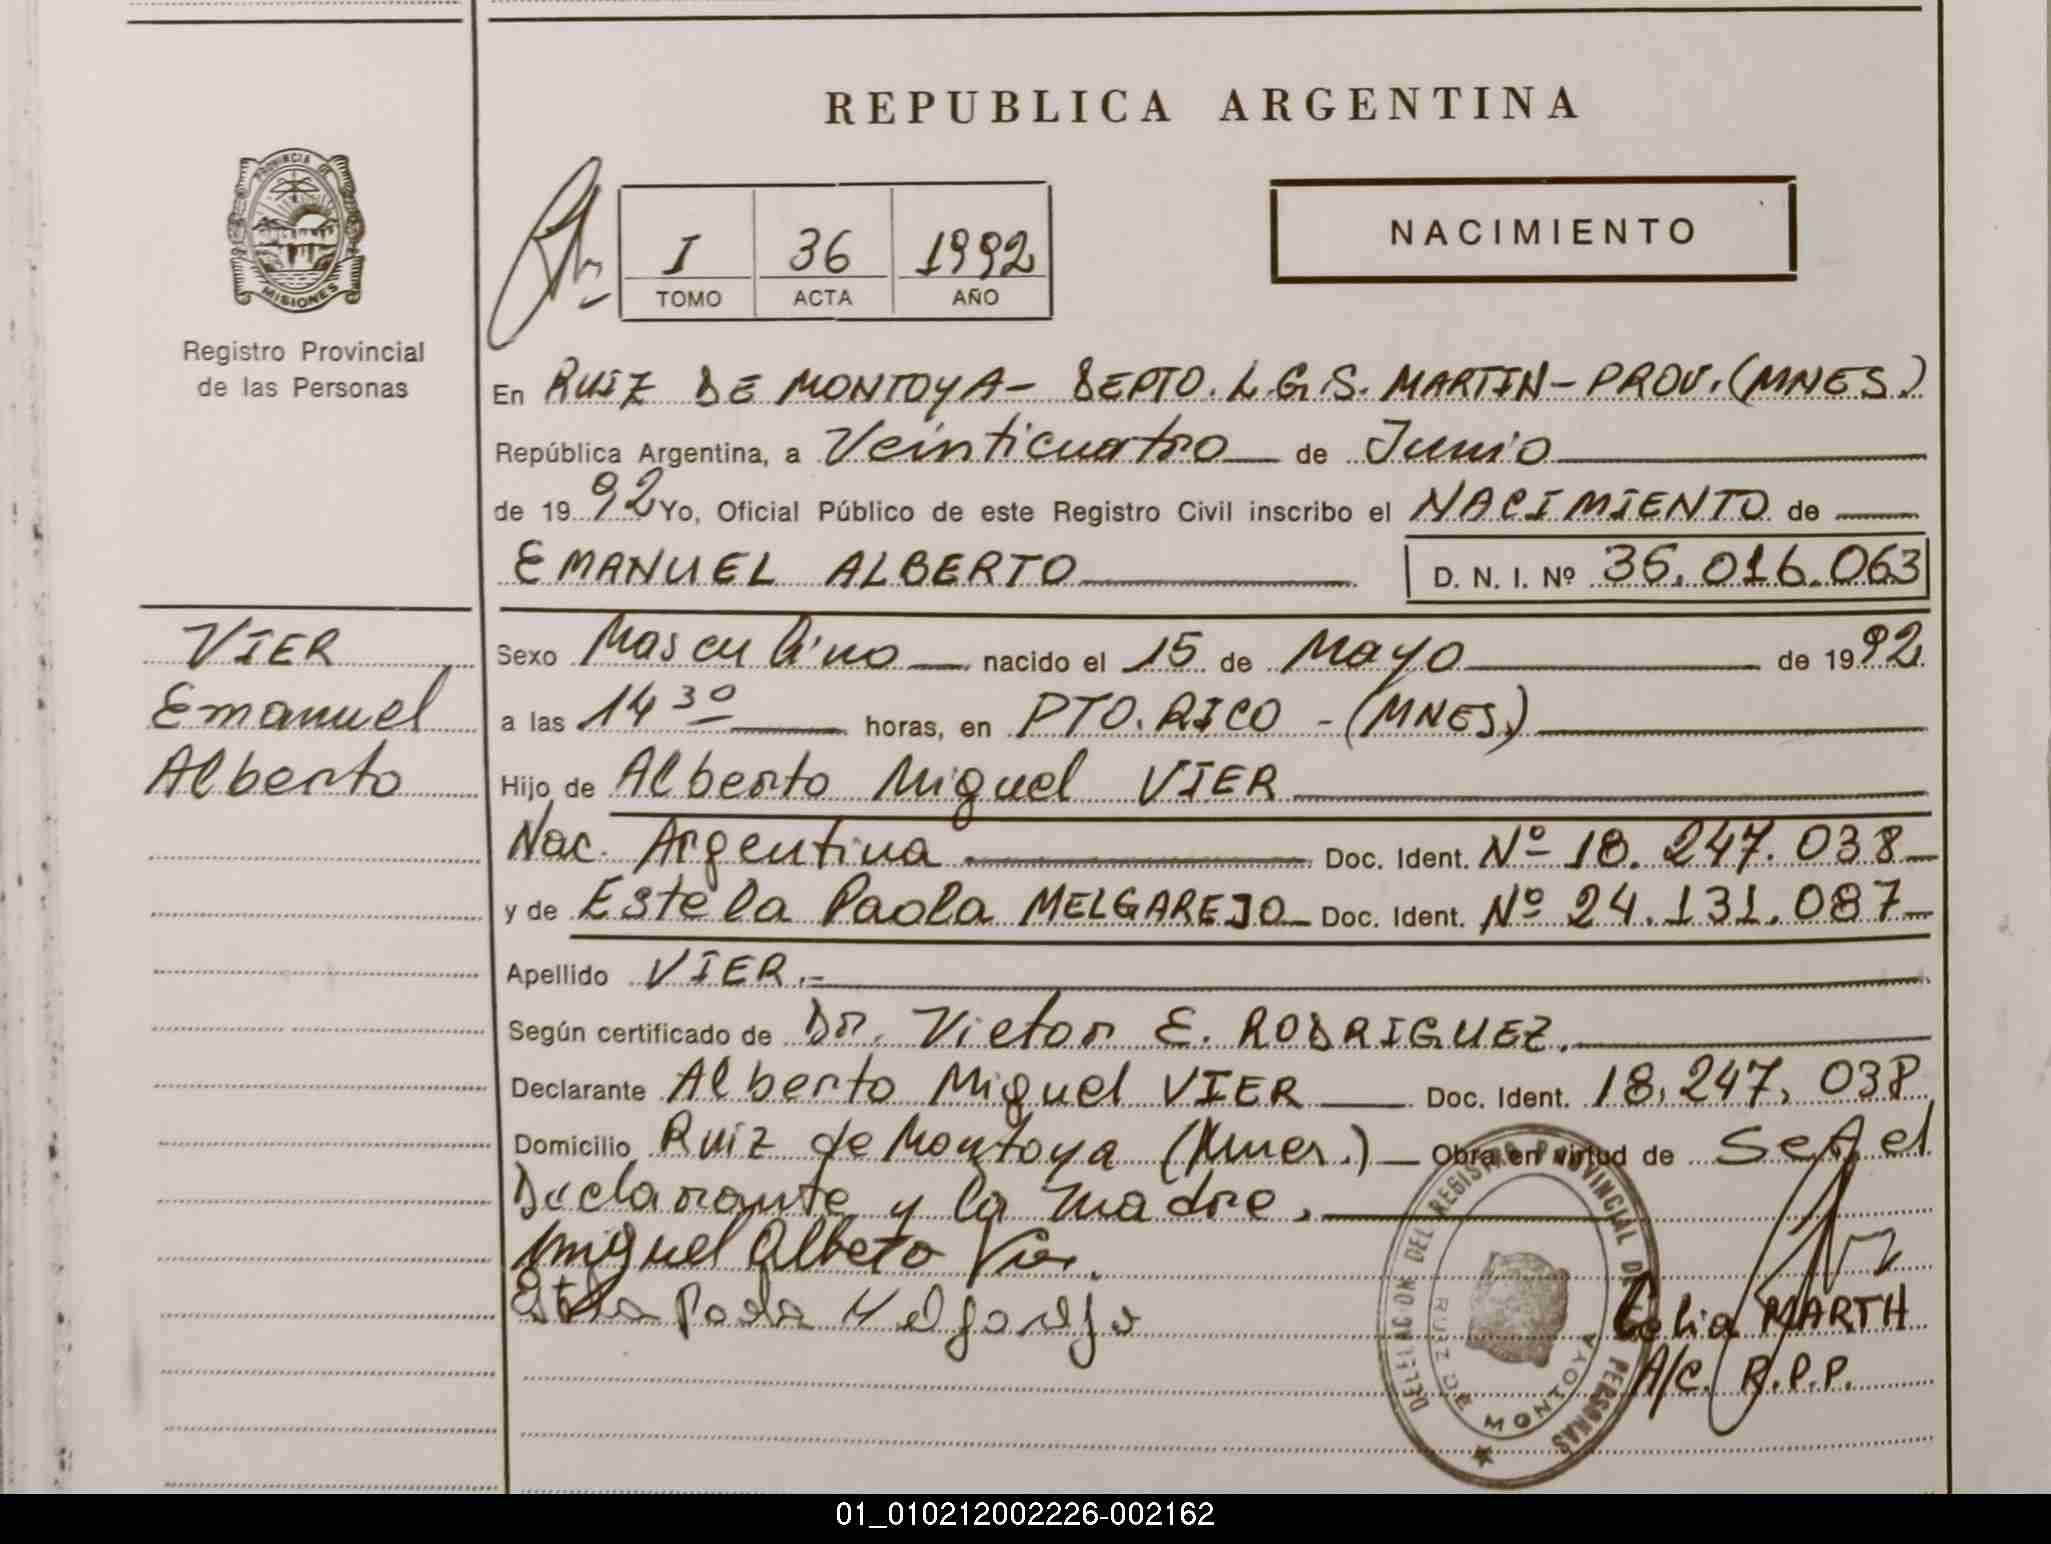 REPUBLICA ARGENTINA
PROVINCIA DE
MISIONES
Registro Provincial
de las Personas
I 36 1992
TOMO ACTA AÑO
NACIMIENTO
En RUIZ DE MONTOYA - DEPTO. L.G.S. MARTIN - PROV. (MNES.)
República Argentina, a Veinticuatro de Junio
de 1992 Yo, Oficial Público de este Registro Civil inscribo el NACIMIENTO de
EMANUEL ALBERTO D. N. I. Nº 36.016.063
VIER
Emanuel
Alberto
Sexo Masculino nacido el 15 de Mayo de 1992
a las 14 30 horas, en PTO. RICO - (MNES.)
Hijo de Alberto Miguel VIER
Nac. Argentina Doc. Ident. Nº 18.247.038
y de Estela Paola MELGAREJO Doc. Ident. Nº 24.131.087
Apellido VIER.-
Según certificado de Dr. Victor E. RODRIGUEZ.
Declarante Alberto Miguel VIER Doc. Ident. 18.247.038
Domicilio Ruiz de Montoya (Mnes.) Obra en virtud de Ser el
Declarante y la Madre.
Miguel Alberto Vier.
Estela Paola Melgarejo
DELEGACION DEL REGISTRO PROVINCIAL DE PERSONAS
RUIZ DE MONTOYA
Celia MARTH
A/C. R.P.P.
01_010212002226-002162